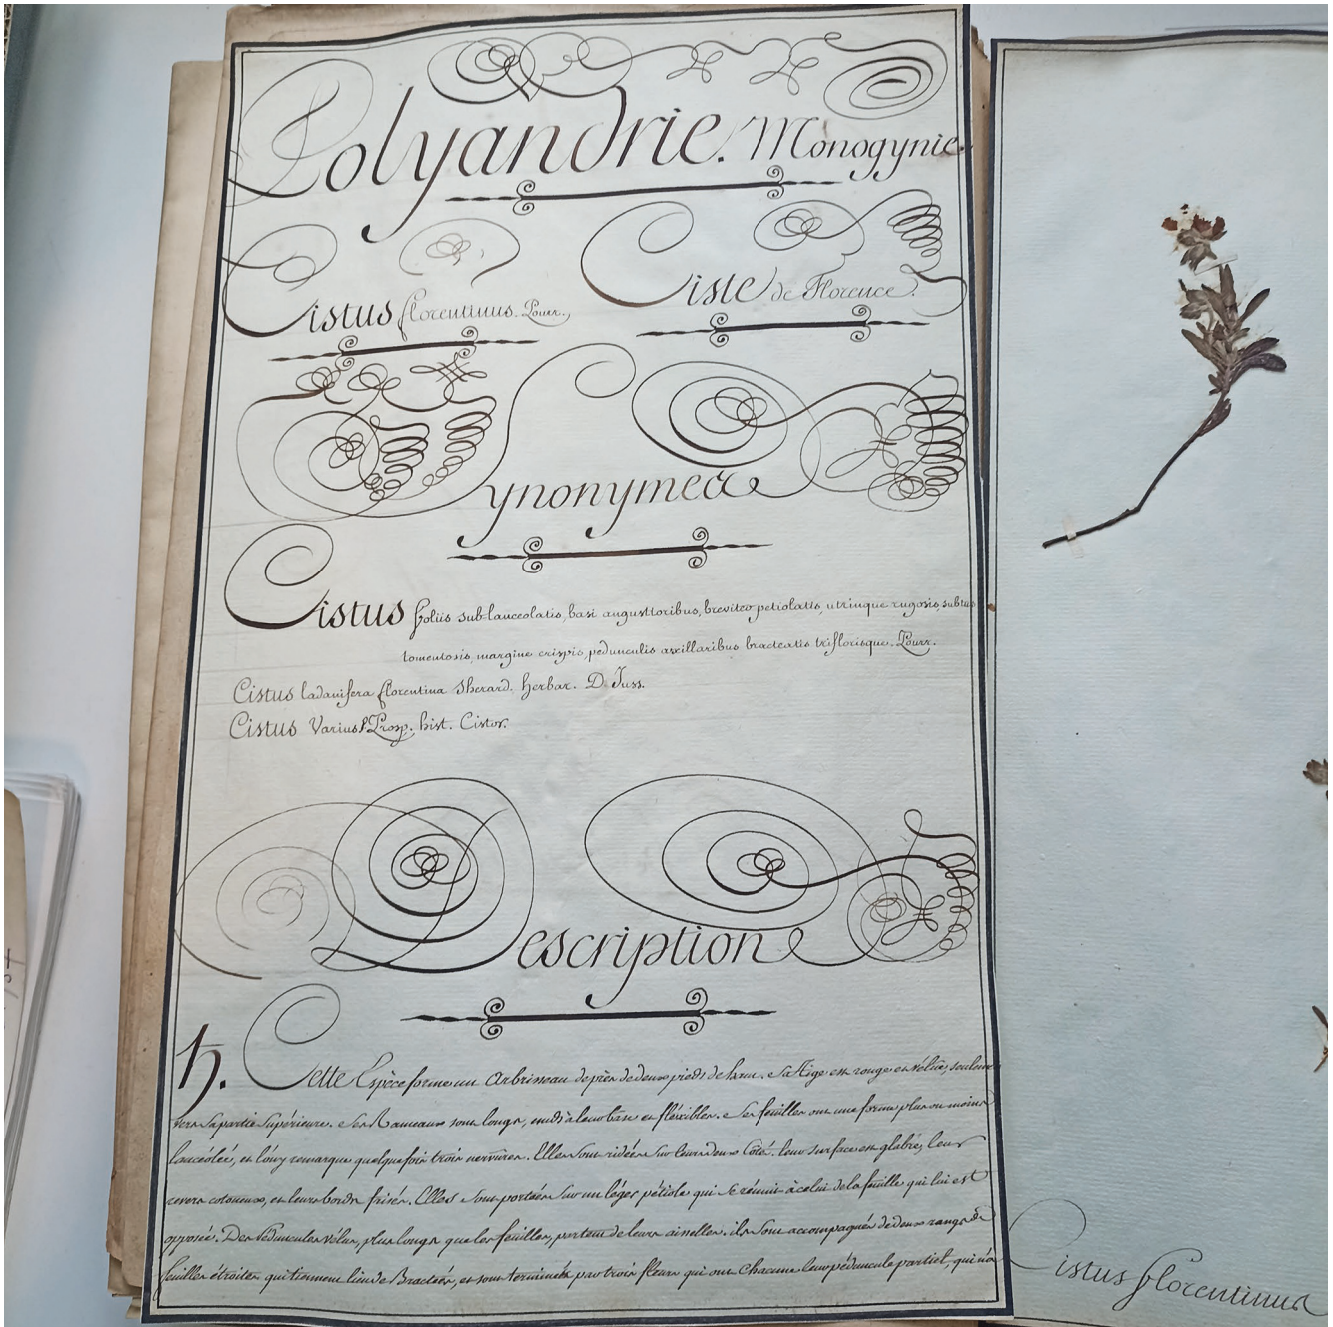 Polyandrie. Monogynie
Cistus florentinus. Pourr.
Ciste de Florence.
Synonymea
Cistus foliis sub-lanceolatis, basi angustioribus, breviter petiolatis, utrinque rugosis, subtus
tomentosis, margine crispis, pedunculis axillaribus bracteatis triflorisque. Pourr.
Cistus ladanifera florentina Sherard. herbar. D. Juss.
Cistus Varius Prosp. hist. Cistor.
Description
♄. Cette Espèce forme un Arbrisseau de près de deux pieds de haut. Sa Tige est rouge et vélue, seulement
vers sa partie Supérieure. Ses Rameaux sont longs, nuds à leur base et fléxibles. Ses feuilles ont une forme plus ou moins
lancéolée, et l'on y remarque quelquefois trois nervures. Elles sont ridées sur leurs deux Côtés. leur surface est glabre, leur
revers cotoneux, et leurs bords frisés. Elles sont portées sur un léger pétiole qui se réunit à celui de la feuille qui lui est
opposée. Des Péduncules vélus, plus longs que les feuilles, partent de leurs aisselles. ils sont accompagnés de deux rangs de
feuilles étroites qui tiennent lieu de Bractées, et sont terminés par trois fleurs qui ont chacune leur péduncule partiel, qui n'a
Cistus florentinus